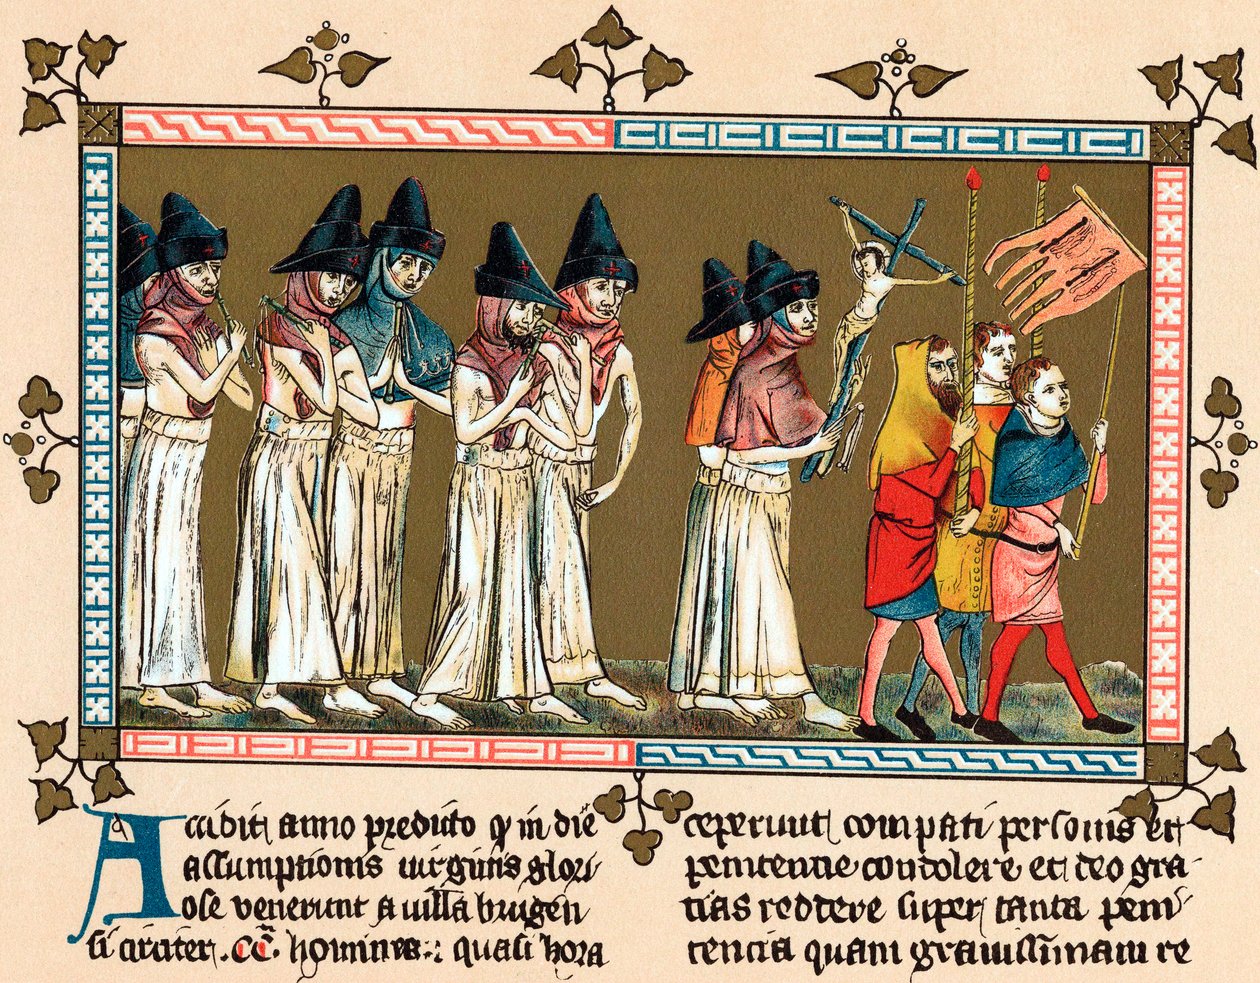 Accidit anno predicto ꝙ in die
assumptionis uirginis glori
ose venerunt a villa brugen
si circiter .CC. homines: quasi hora
ceperunt compati personis et
penitentie condolere et deo gra
tias reddere super tanta peni
tencia quam grauissimam re